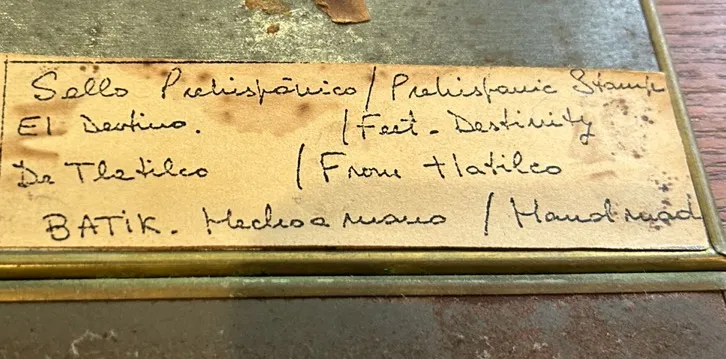 Sello Prehispánico / Prehispanic Stamp
El Destino. / Feet - Destinity
De Tlatilco / From tlatilco
BATIK. Hecho a mano / Handmad